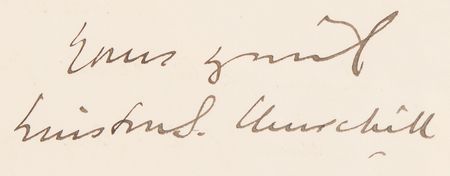 Yours
Winston S. Churchill